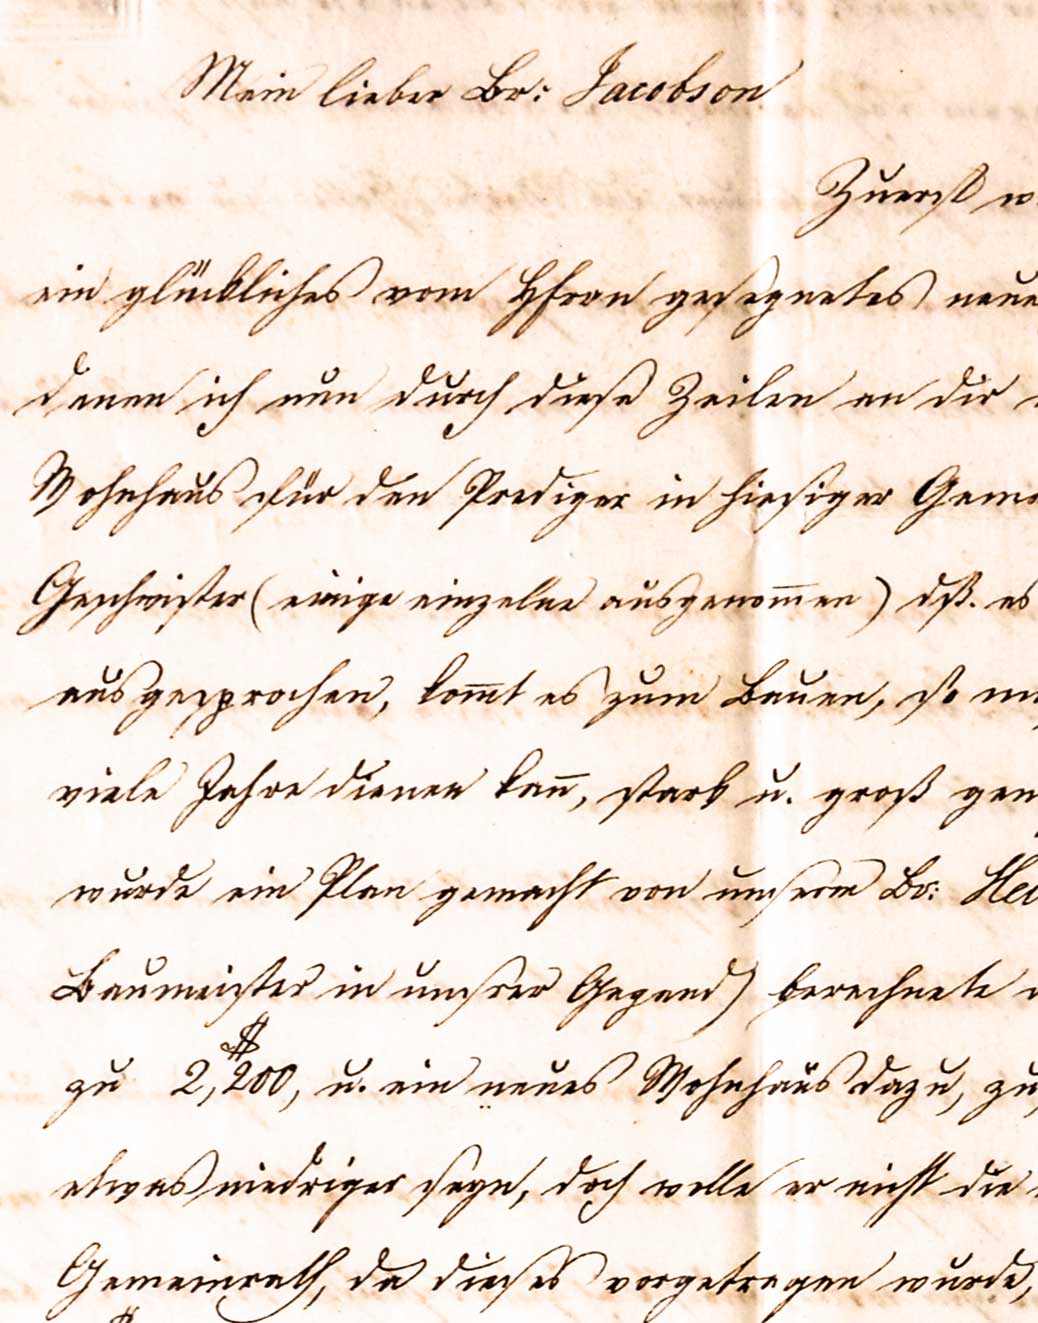 Mein lieber Br: Jacobson
Zuerst
ein glückliches vom Herrn gesegnetes neue
denen ich nun durch diese Zeilen an dir
Wohnhaus für den Prediger in hiesiger Geme
Geschwister (einige einzelne ausgenom̄en) dß. es
ausgesprochen, kom̄t es zum Bauen, so
viele Jahre dienen kan̄, stark u. groß gen
wurde ein Plan gemacht von unserm Br:
Baumeister in unsrer Gegend) berechnete
$
zu 2,200, u. ein neues Wohnhaus dazu, zu
etwas niedriger seyn, doch wolle er nicht die
Gemeinrath, da dieses vorgetragen wurde,